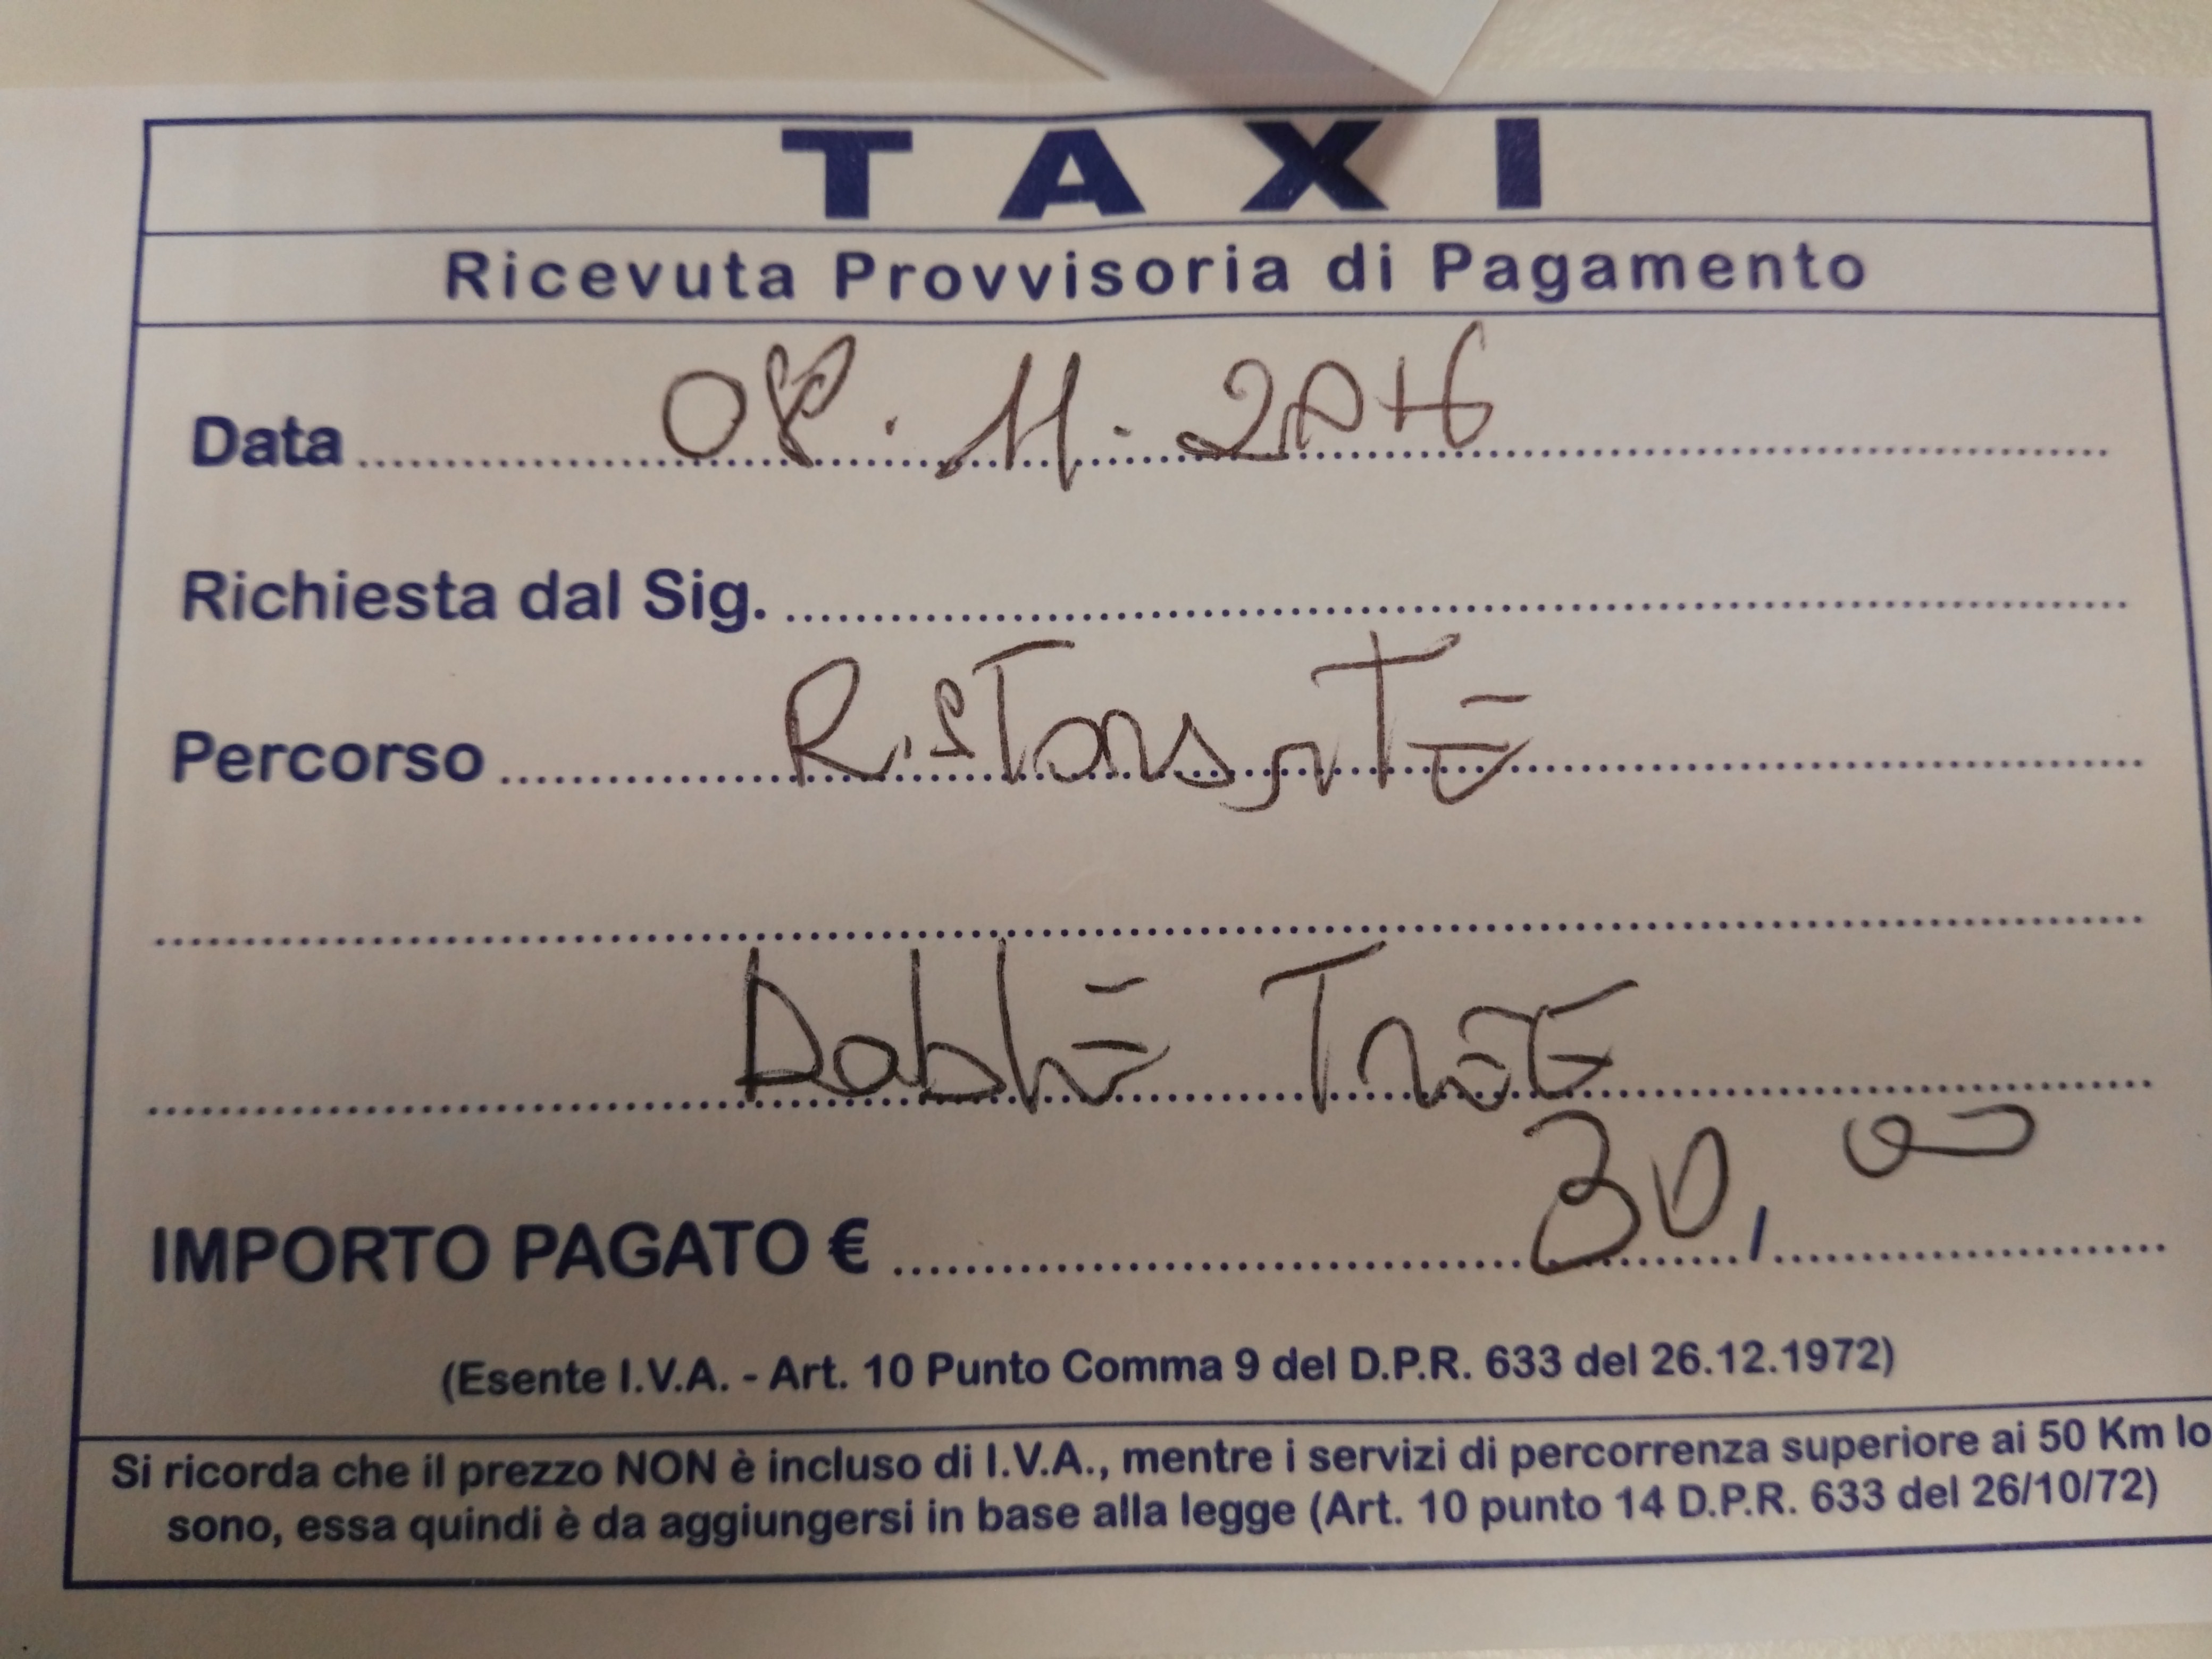 TAXI
Ricevuta Provvisoria di Pagamento
Data 08.11.2016
Richiesta dal Sig.
Percorso RisToranTE
DobblE TrEE
IMPORTO PAGATO € 30,00
(Esente I.V.A. - Art. 10 Punto Comma 9 del D.P.R. 633 del 26.12.1972)
Si ricorda che il prezzo NON è incluso di I.V.A., mentre i servizi di percorrenza superiore ai 50 Km lo
sono, essa quindi è da aggiungersi in base alla legge (Art. 10 punto 14 D.P.R. 633 del 26/10/72)